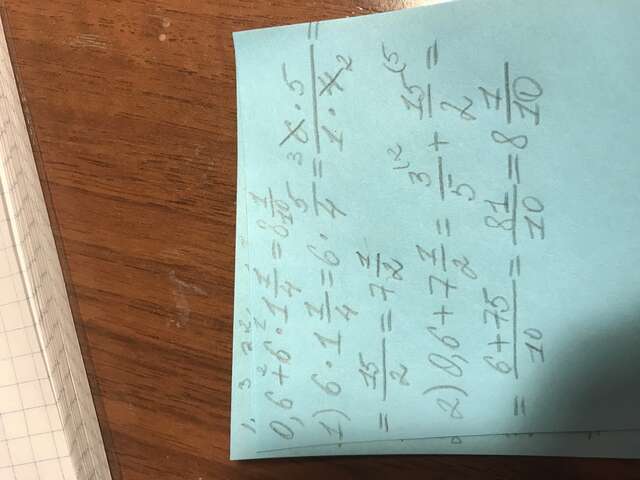 0,6 + 6 · 1 1/4 = 8 1/10
1) 6 · 1 1/4 = 6 · 5/4 = 6 · 5 / 1 · 4 =
= 15/2 = 7 1/2
2) 0,6 + 7 1/2 = 3/5 + 15/2 =
= 6 + 75 / 10 = 81/10 = 8 1/10